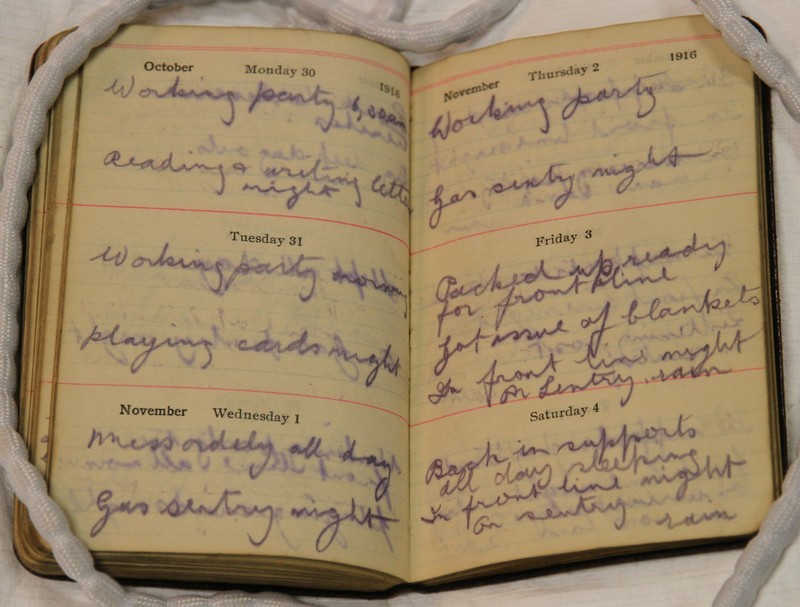 October Monday 30 1916
Working party 6,30am
Reading & writing letters
night
Tuesday 31
Working party morning
playing cards night
November Wednesday 1
Mess ordely all day
Gas sentry night
November Thursday 2 1916
Working party
Gas sentry night
Friday 3
Packed up ready
for front line
Got issue of blankets
In front line night
on sentry rain
Saturday 4
Back in supports
all day sleeping
In front line night
on sentry
rain